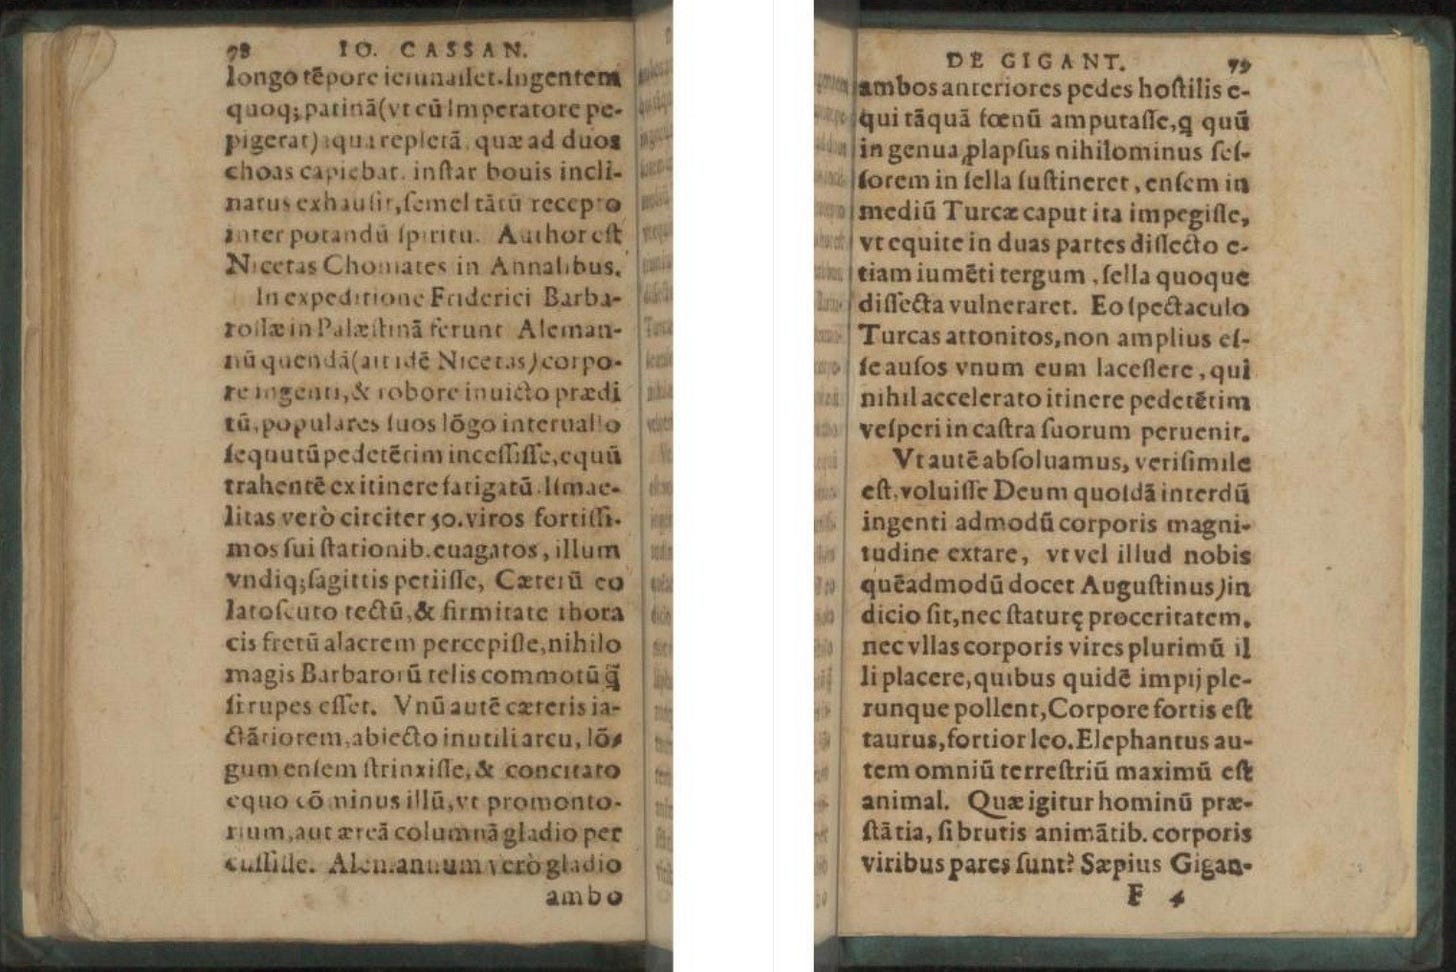 98 IO. CASSAN.
longo tēpore ieiunasset. Ingentem
quoq; patinā(vt cū Imperatore pe-
pigerat) aqua repletā, quæ ad duos
choas capiebat, instar bouis incli-
natus exhausit, semel tātū recepto
inter potandū spiritu. Author est
Nicetas Choniates in Annalibus.
In expeditione Friderici Barba-
rossæ in Palæstinā ferunt Aleman-
nū quendā(ait idē Nicetas) corpo-
re ingenti, & robore inuicto prædi
tū, populares suos lōgo interuallo
sequutū pedetētim incessisse, equū
trahentē ex itinere fatigatū. Ismae-
litas verò circiter 50. viros fortissi-
mos sui stationib. euagatos, illum
vndiq; sagittis petiisse, Cæterū eo
lato scuto tectū, & firmitate thora
cis fretū alacrem percepisse, nihilo
magis Barbarorū telis commotū q̄
si rupes esset. Vnū autē cæteris ia-
ctātiorem, abiecto inutili arcu, lō-
gum ensem strinxisse, & concitato
equo cōminus illū, vt promonto-
rium, aut æreā columnā gladio per
cussisse. Alemannum verò gladio
ambo
DE GIGANT. 99
ambos anteriores pedes hostilis e-
qui tāquā fœnū amputasse, q quū
in genua ꝓlapsus nihilominus ses-
sorem in sella sustineret, ensem in
mediū Turcæ caput ita impegisse,
vt equite in duas partes dissecto e-
tiam iumēti tergum, sella quoque
dissecta vulneraret. Eo spectaculo
Turcas attonitos, non amplius es-
se ausos vnum eum lacessere, qui
nihil accelerato itinere pedetētim
vesperi in castra suorum peruenit.
Vt autē absoluamus, verisimile
est, voluisse Deum quosdā interdū
ingenti admodū corporis magni-
tudine extare, vt vel illud nobis
quēadmodū docet Augustinus)in
dicio sit, nec staturę proceritatem,
nec vllas corporis vires plurimū il
li placere, quibus quidē impij ple-
runque pollent, Corpore fortis est
taurus, fortior leo. Elephantus au-
tem omniū terrestriū maximū est
animal. Quæ igitur hominū præ-
stātia, si brutis animātib. corporis
viribus pares sunt? Sæpius Gigan-
F 4